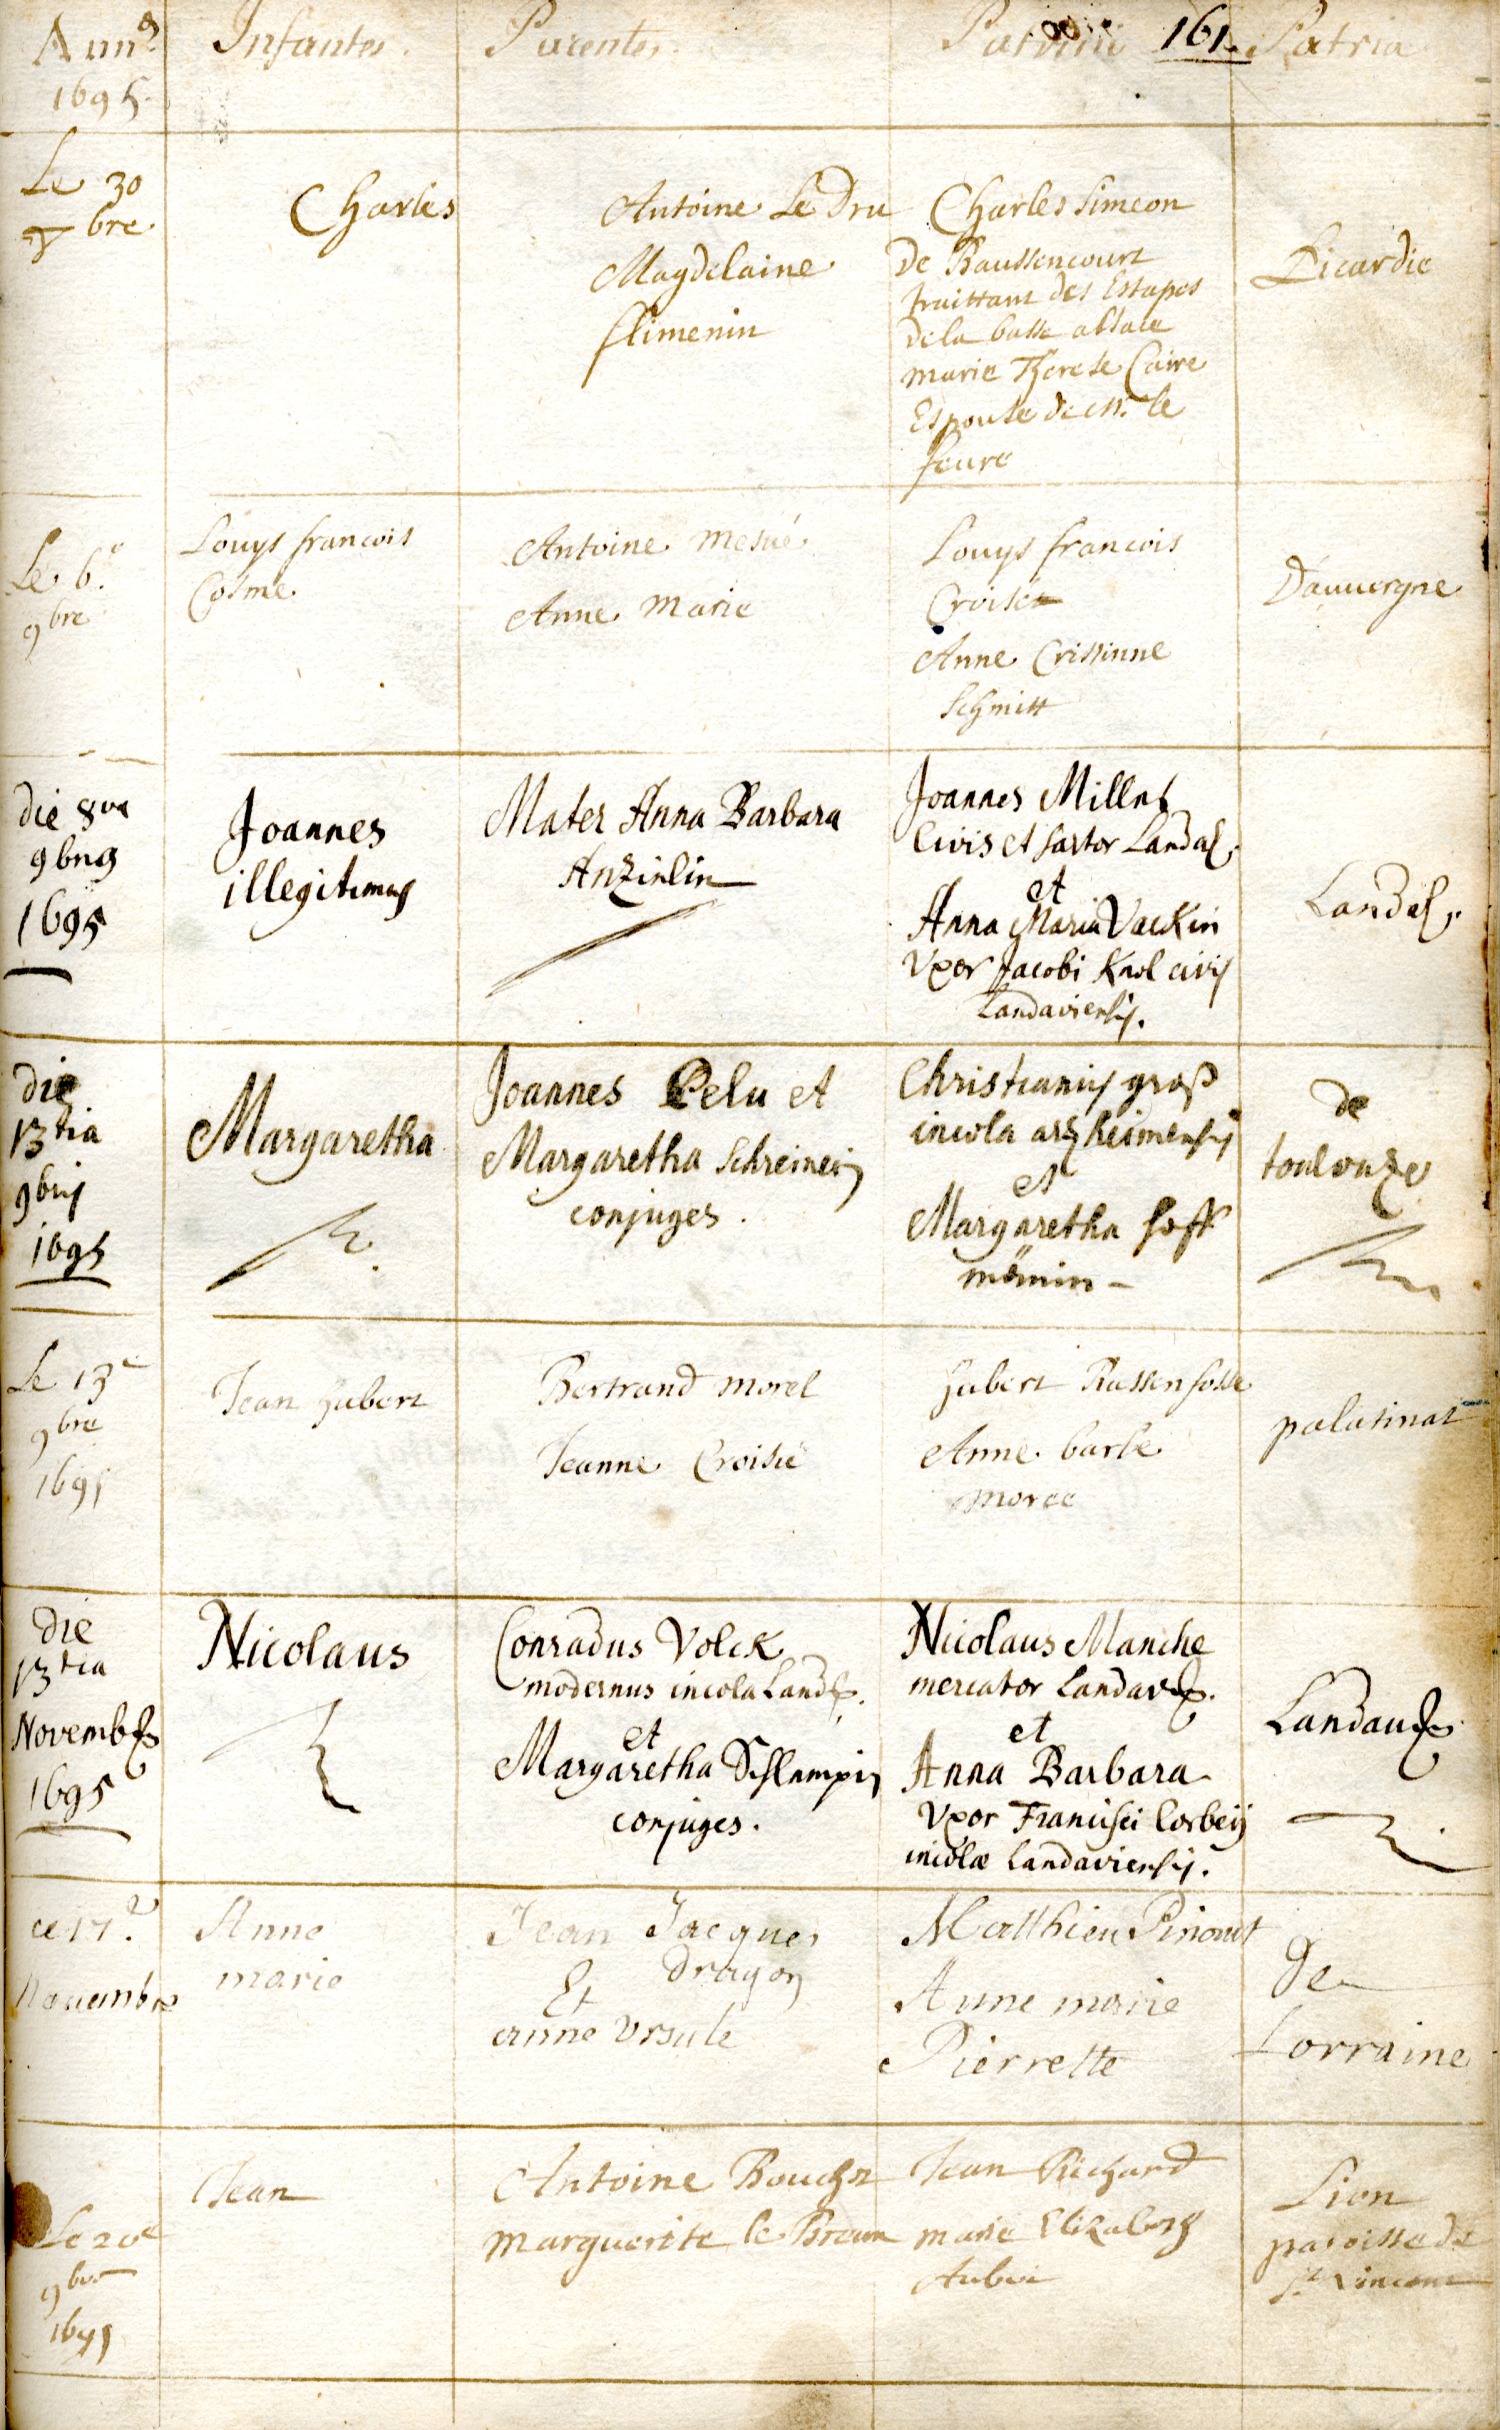 Anno Infantes. Parentes. Patrini 161. Patria
1695.
Le 30
8bre
Charles
Antoine Le Dru
Magdelaine
flimenin
Charles Simeon
de Baussencourt
traittant des Estapes
de la basse alsace
marie Therese Caire
Espouse de M. le
feure
Picardie
Le 6.e
9bre
Louys francois
Cosme
Antoine mesué
Anne Marie
Louys francois
Croisé
Anne Crissinne
Schmitt
D'auuergne
die 8va
9bris
1695
Joannes
illegitimus
Mater Anna Barbara
Anzinlin
Joannes Millet
Civis et sartor Landav.
et
Anna Maria Vackin
Vxor Jacobi Knol civis
Landaviensis.
Landav.
die
13tia
9bris
1695
Margaretha
Joannes Pelu et
Margaretha Schreinerin
conjuges.
Christianus groß
incola arzheimensis
et
Margaretha hoff
mënnin
de
toulouze
Le 13e
9bre
1695
Jean hubert
Bertrand morel
Jeanne Croisié
hubert Rassenfosse
Anne barbe
moree
palatinat
die
13tia
Novembris
1695
Nicolaus
Conradus Volck
modernus incola Landav.
et
Margaretha Schlampin
conjuges.
Nicolaus Manche
mercator Landavens.
et
Anna Barbara
Vxor Francisci Corbeij
incolæ Landaviensis.
Landaus
ce 17e.
Nouembre
Anne
marie
Jean Jacques
dragon
Et
anne Ursule
Matthieu Pinout
Anne marie
Pierrette
de
Lorraine
Le 20e
9bre
1695
Jean
Antoine Bouchr
Marguerite le Breun
Jean Richard
marie Elizabeth
Aubin
Lion
paroisse de
St Vincent